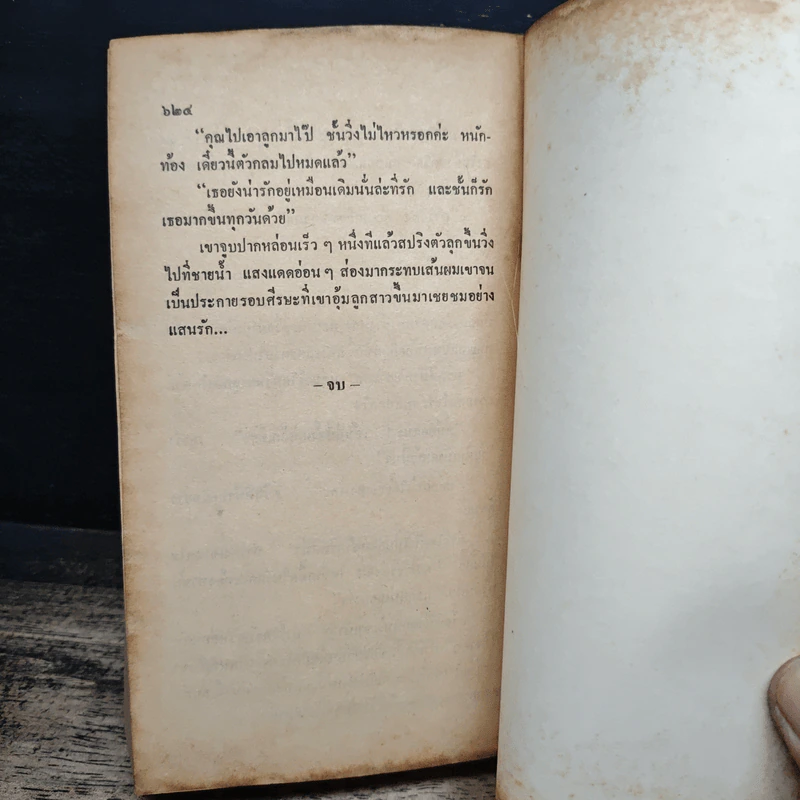 ๖๒๔
“คุณไปเอาลูกมาไป๊ ชั้นวิ่งไม่ไหวหรอกค่ะ หนัก-
ท้อง เดี๋ยวนี้ตัวกลมไปหมดแล้ว”
“เธอยังน่ารักอยู่เหมือนเดิมนั่นล่ะที่รัก และชั้นก็รัก
เธอมากขึ้นทุกวันด้วย”
เขาจูบปากหล่อนเร็ว ๆ หนึ่งทีแล้วสปริงตัวลุกขึ้นวิ่ง
ไปที่ชายน้ำ แสงแดดอ่อน ๆ ส่องมากระทบเส้นผมเขาจน
เป็นประกายรอบศีรษะที่เขาอุ้มลูกสาวขึ้นมาเชยชมอย่าง
แสนรัก...
– จบ –